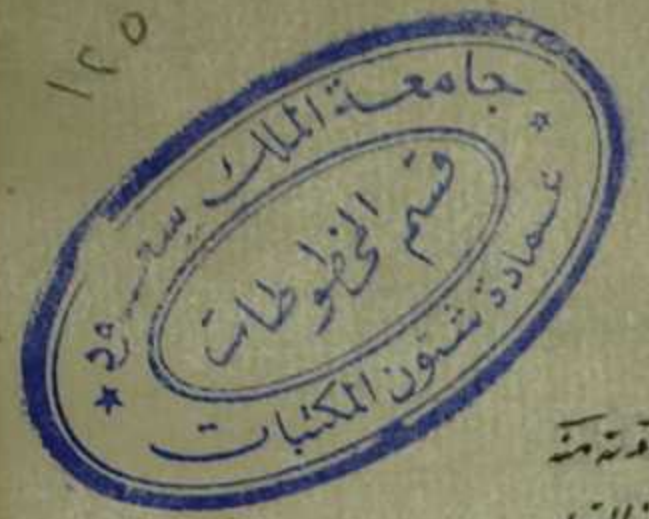 ١٢٥
جامعة الملك سعود
قسم المخطوطات
عمادة شئون المكتبات